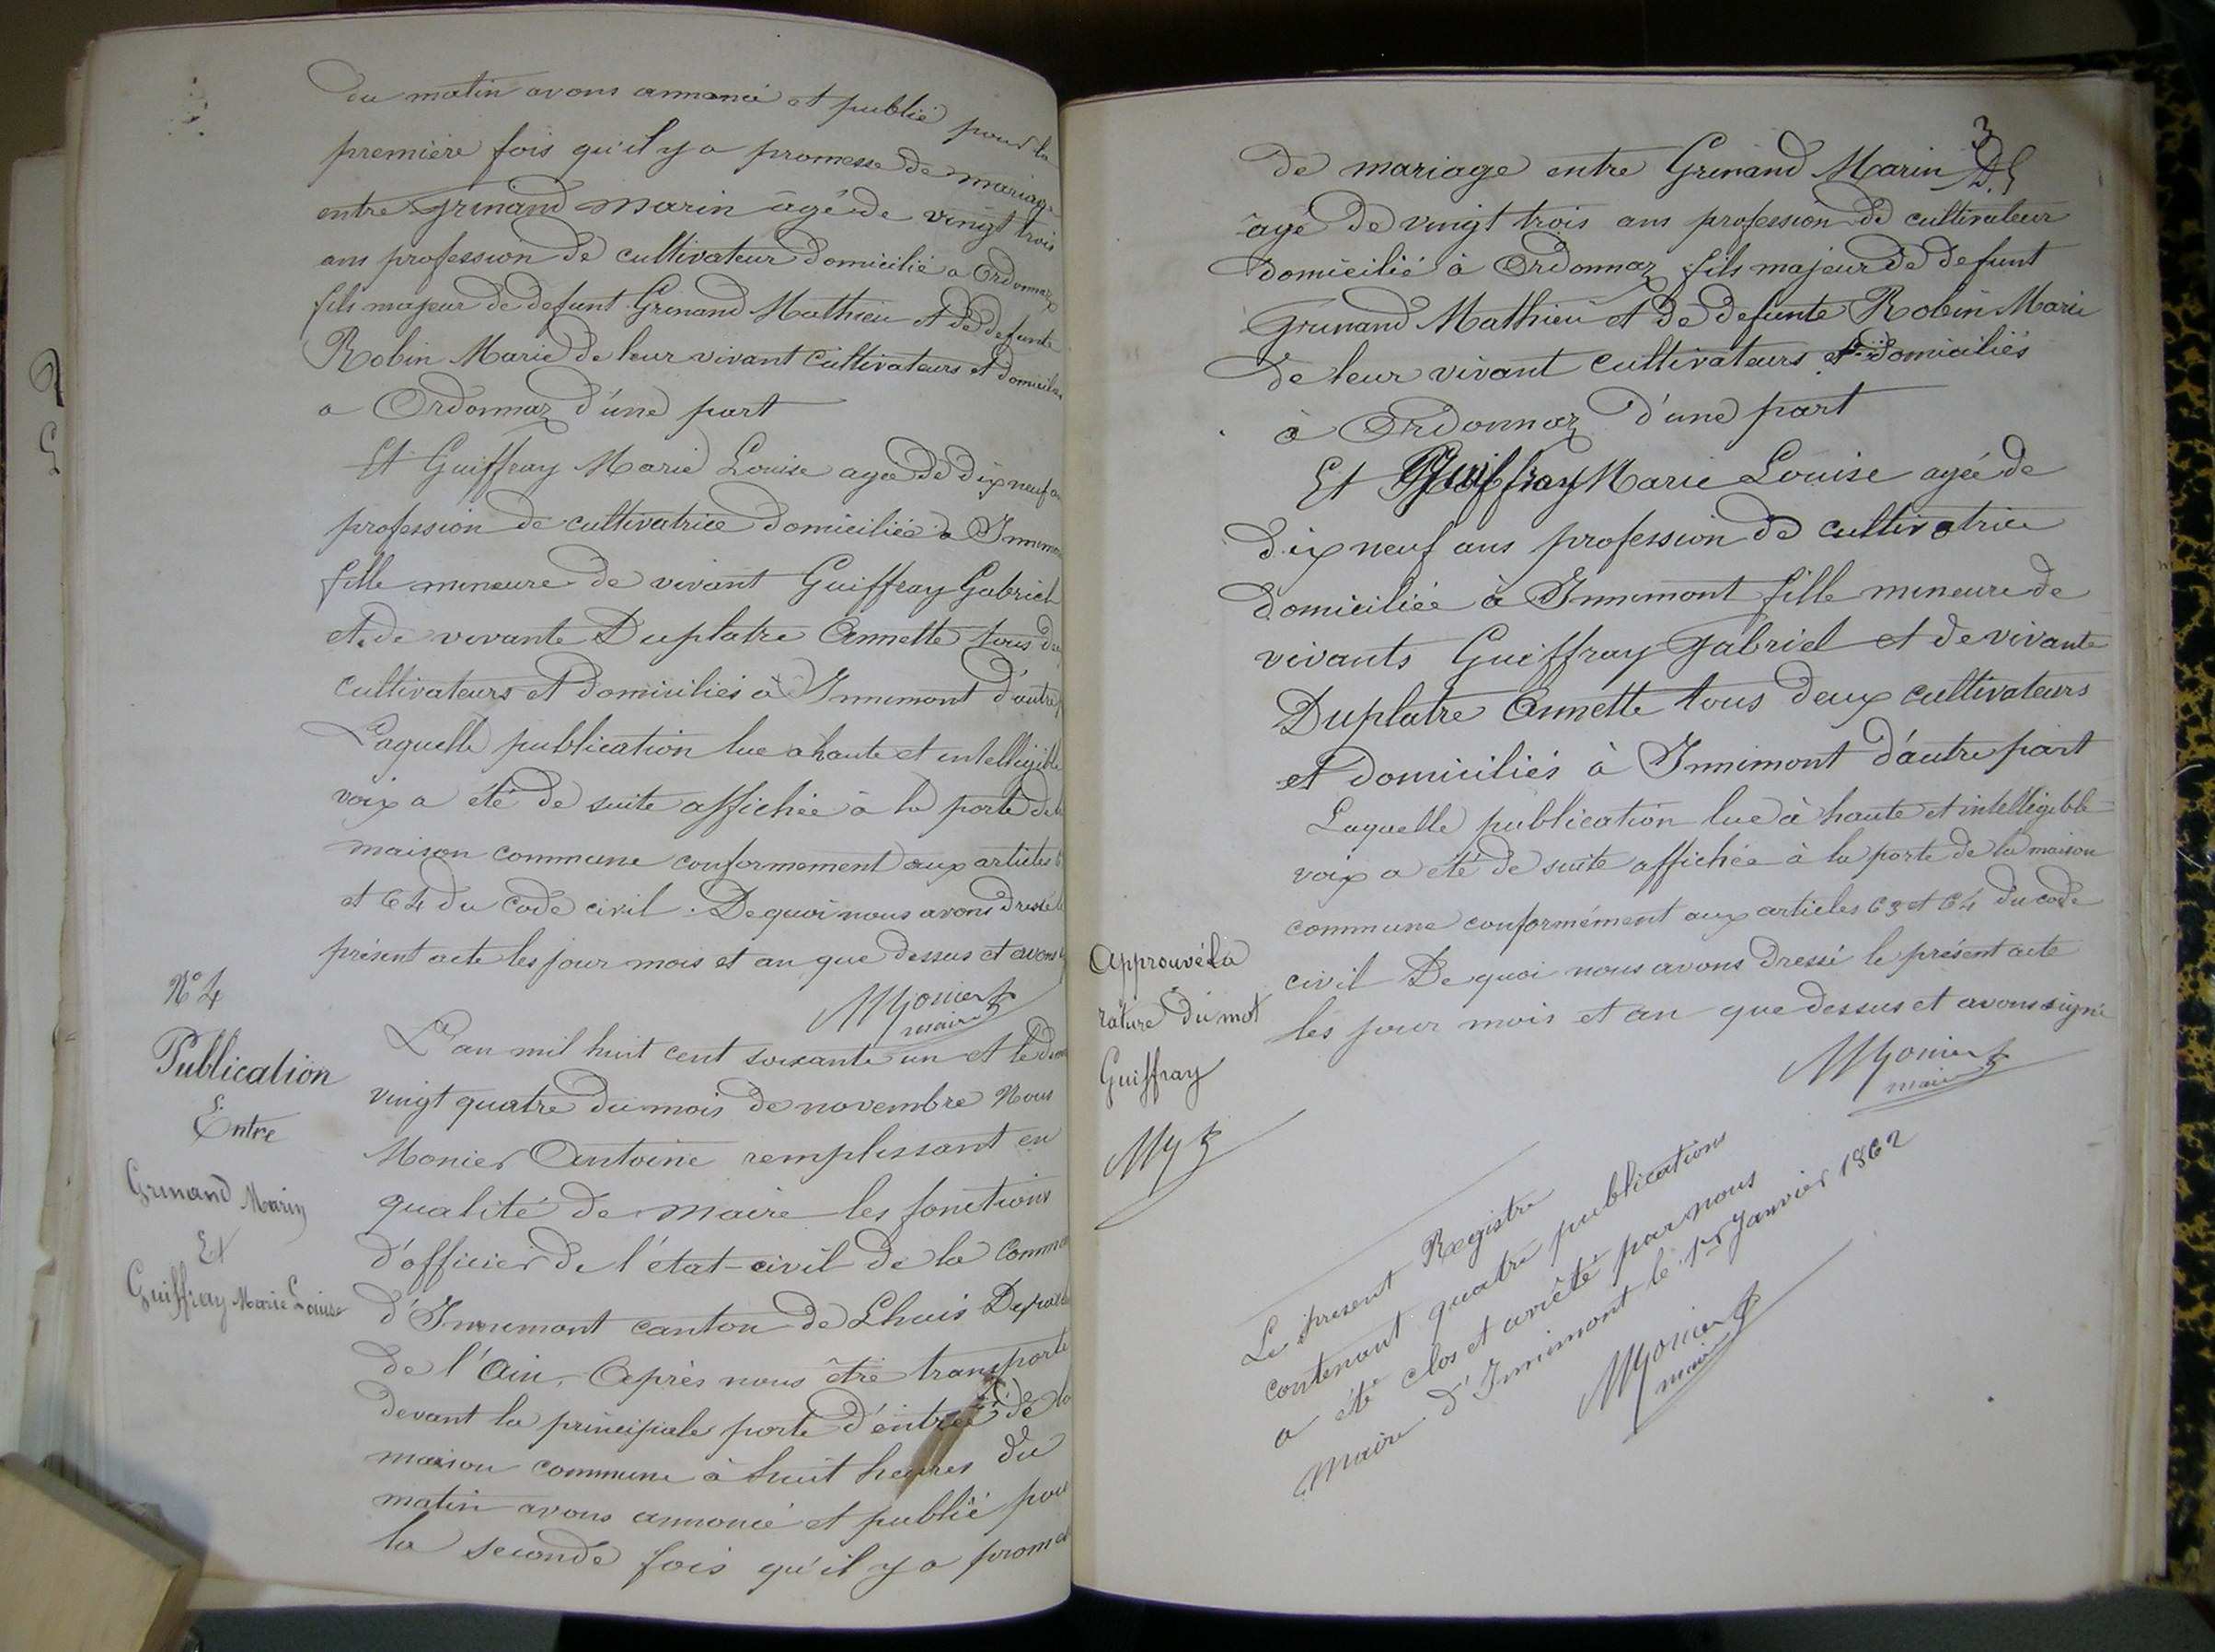 du matin avons annoncé et publié pour la
première fois qu'il y a promesse de mariage
entre Grinand Marin âgé de vingt trois
ans profession de cultivateur domicilié a Ordonnaz
fils majeur de defunt Grinand Mathieu et de defunte
Robin Marie de leur vivant cultivateurs et domiciliés
a Ordonnaz d'une part
Et Guiffray Marie Louise agée de dix neuf ans
profession de cultivatrice domiciliée a Innimont
fille mineure de vivant Guiffray Gabriel
et de vivante Duplatre Annette tous deux
cultivateurs et domiciliés à Innimont d'autre
Laquelle publication lue a haute et intelligible
voix a été de suite affichée à la porte de la
maison commune conformement aux articles
et 64 du code civil. De quoi nous avons dressé le
présent acte les jour mois et an que dessus et avons
Monier
maire
N° 4
Publication
Entre
Grinand Marin
Et
Guiffray Marie Louise
L'an mil huit cent soixante un et le
vingt quatre du mois de novembre Nous
Monier Antoine remplissant en
qualité de maire les fonctions
d'officier de l'état-civil de la Commune
d'Innimont canton de Lhuis
de l'Ain, Après nous être transporté
devant la principale porte d'entrée de la
maison commune à huit heures du
matin avons annoncé et publié pour
la seconde fois qu'il y a
3
de mariage entre Grinand Marin
âgé de vingt trois ans profession de cultivateur
domicilié à Ordonnaz fils majeur de defunt
Grinand Mathieu et de defunte Robin Marie
de leur vivant cultivateurs et domiciliés
à Ordonnaz d'une part
Et Guiffray Marie Louise agée de
dix neuf ans profession de cultivatrice
domiciliée à Innimont fille mineure de
vivants Guiffray Gabriel et de vivante
Duplatre Annette tous deux cultivateurs
et domiciliés à Innimont d'autre part
Laquelle publication lue à haute et intelligible
voix a été de suite affichée à la porte de la maison
commune conformément aux articles 63 et 64 du code
civil De quoi nous avons dressé le présent acte
les jour mois et an que dessus et avons signé
Monier
maire
Approuvé la
rature du mot
Guiffray
Le present Registre
contenant quatre publications
a été clos et arrêté par nous
Maire d'Innimont le 1er Janvier 1862
Monier
maire